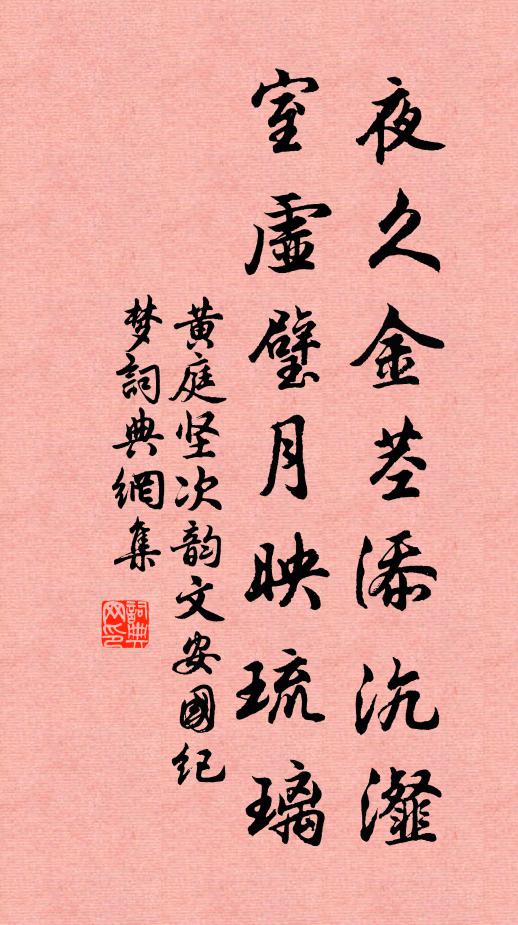 夜久金茎添沆瀣
室虚璧月映琉璃
黄庭坚次韵文安國纪
梦詞典網集
詞典网印